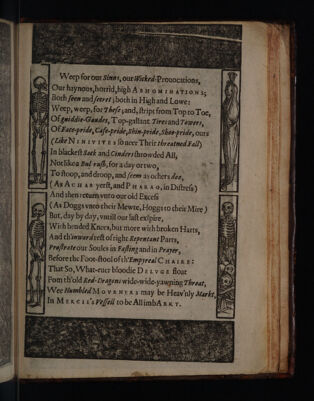 Weep for our Sinns, our Wicked-Provocations,
Our haynous, horrid, high ABHOMINATIONS;
Both seen and secret; both in High and Lowe:
Weep, weep, for These; and, stript from Top to Toe,
Of guiddie-Gaudes, Top-gallant Tires and Towers,
Of Face-pride, Case-pride, Shin-pride, Shoe-pride, ours
(Like NINIVITES so neer Their threatned Fall)
In blackest Sack and Cinders shrowded All,
Not like a Bul-rush, for a day or two,
To stoop, and droop, and seem as others doe,
(As ACHAB yerst, and PHARAO, in Distress)
And then return vnto our old Excess
(As Doggs vnto their Mewte, Hoggs to their Mire)
But, day by day, vntill our last expire,
With bended Knees, but more with broken Harts,
And th'inward rest of right Repentant Parts,
Prostrate our Soules in Fasting and in Prayer,
Before the Foot-stool of th'Empyreal CHAIRE:
That So, What-euer bloodie DELVGE flout
Fom th'old Red-Dragons wide-wide-yawning Throat,
Wee Humbled MOVRNERS may be Heav'nly Markt,
In MERCIE's Vessell to be All imbARKT.